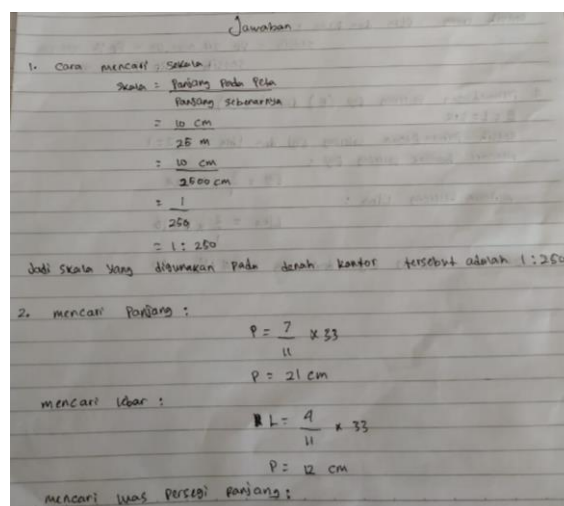 Jawaban
1. Cara mencari skala
Skala = Panjang Pada Peta
Panjang sebenarnya
= 10 cm
25 m
= 10 cm
2500 cm
= 1
250
= 1 : 250
Jadi skala yang digunakan pada denah kantor tersebut adalah 1 : 250
2. mencari Panjang :
P = 7 x 33
11
P = 21 cm
mencari lebar :
L = 4 x 33
11
P = 12 cm
mencari luas persegi panjang :